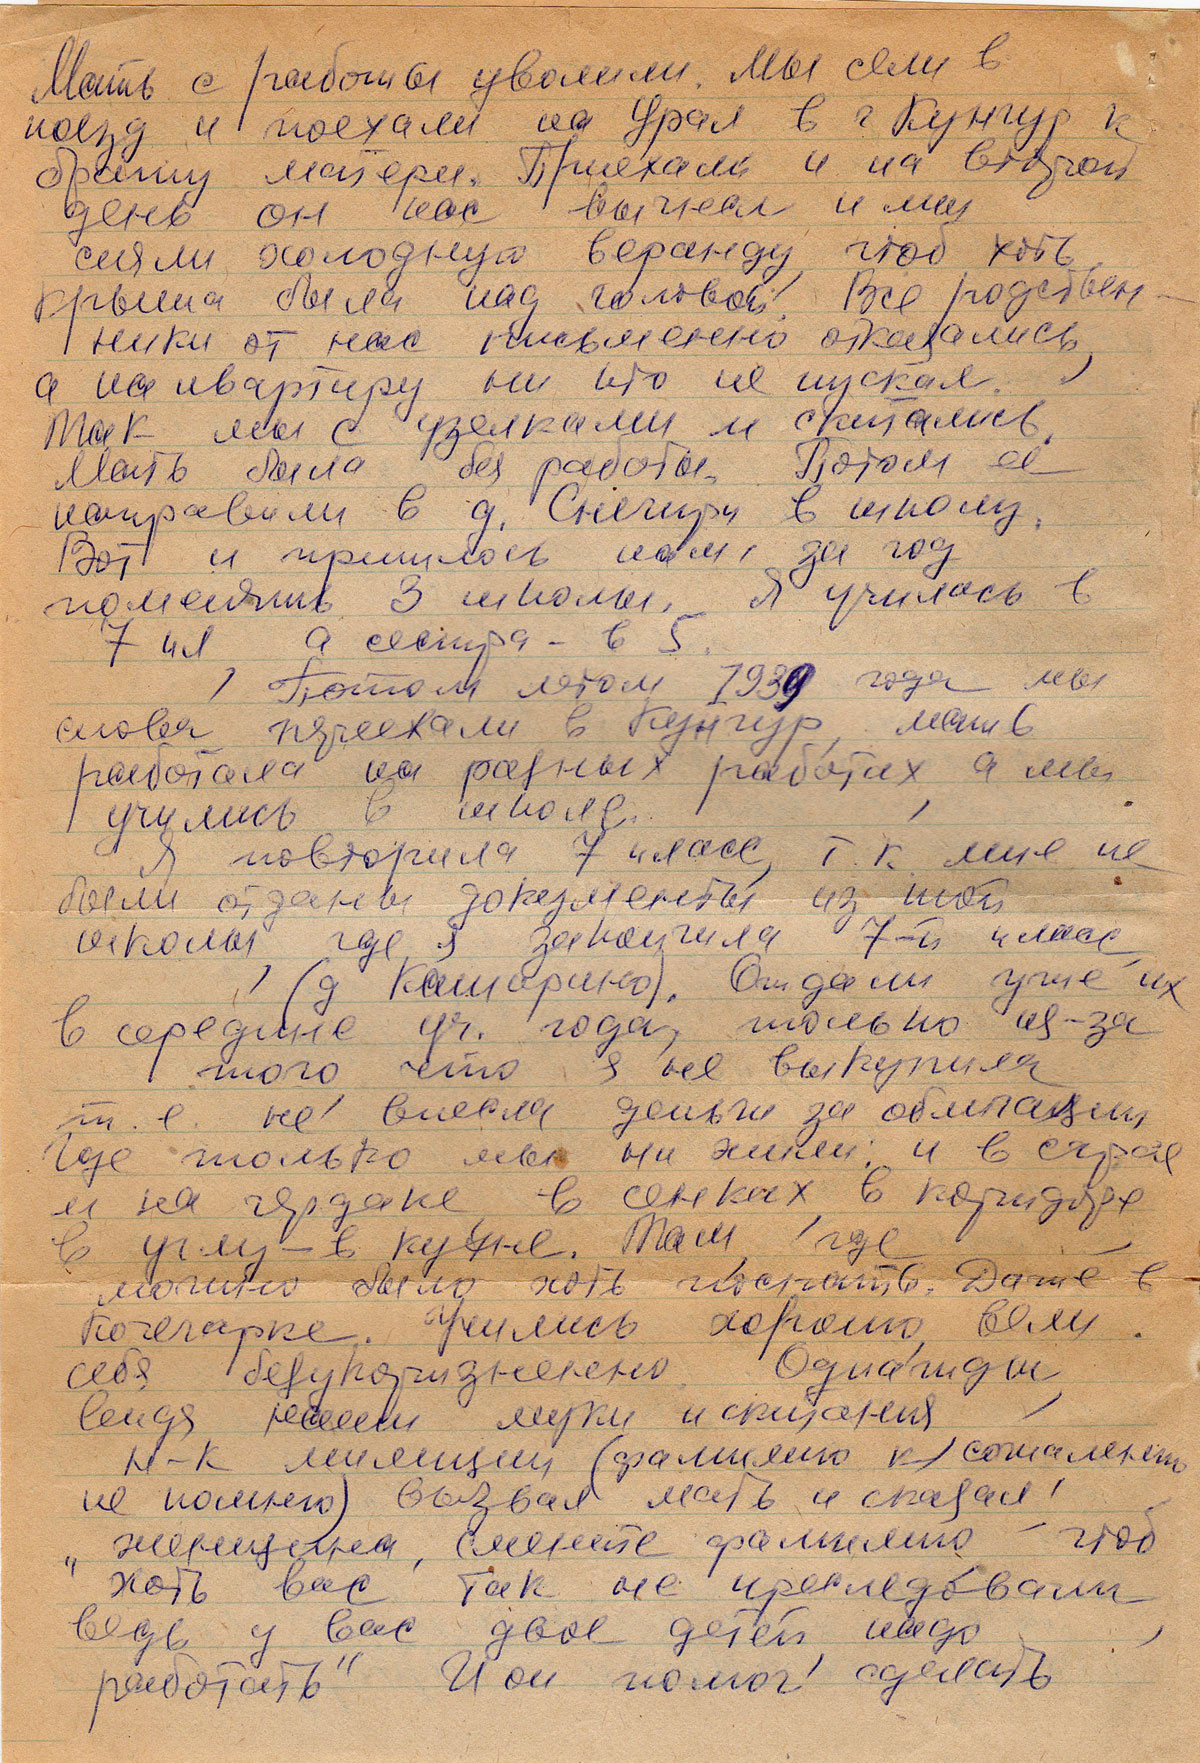 Мать с работы уволили. Мы сели в
поезд и поехали на Урал в г Кунгур к
брату матери. Приехали и на второй
день он нас выгнал и мы
сняли холодную веранду, чтоб хоть
крыша была над головой! Все родствен-
ники от нас письменно отказались,
а на квартиру ни кто не пускал.
Так мы с узелками и скитались.
Мать была без работы. Потом ее
направили в д. Снегири в школу.
Вот и пришлось нам за год
поменять 3 школы. Я училась в
7 кл а сестра - в 5.
Потом летом 1939 года мы
снова переехали в Кунгур, мать
работала на разных работах а мы
учились в школе.
Я повторила 7 класс, т.к. мне не
были отданы документы из той
школы где я закончила 7-й класс,
(д Кашарино). Отдали уже их
в середине уч. года, только из-за
того что я не выкупила
т. е не внесла деньги за облигации
Где только мы ни жили: и в сарае
и на чердаке, в сенках, в коридоре
в углу - в кухне. Там, где
можно было хоть поспать. Даже в
кочегарке. Учились хорошо, вели
себя безукоризненно. Однажды,
видя наши муки и скитания,
н-к милиции (фамилию к сожалению
не помню) вызвал мать и сказал:
„женщина, смените фамилию - чтоб
хоть вас так не преследовали,
ведь у вас двое детей, надо
работать" И он помог сделать